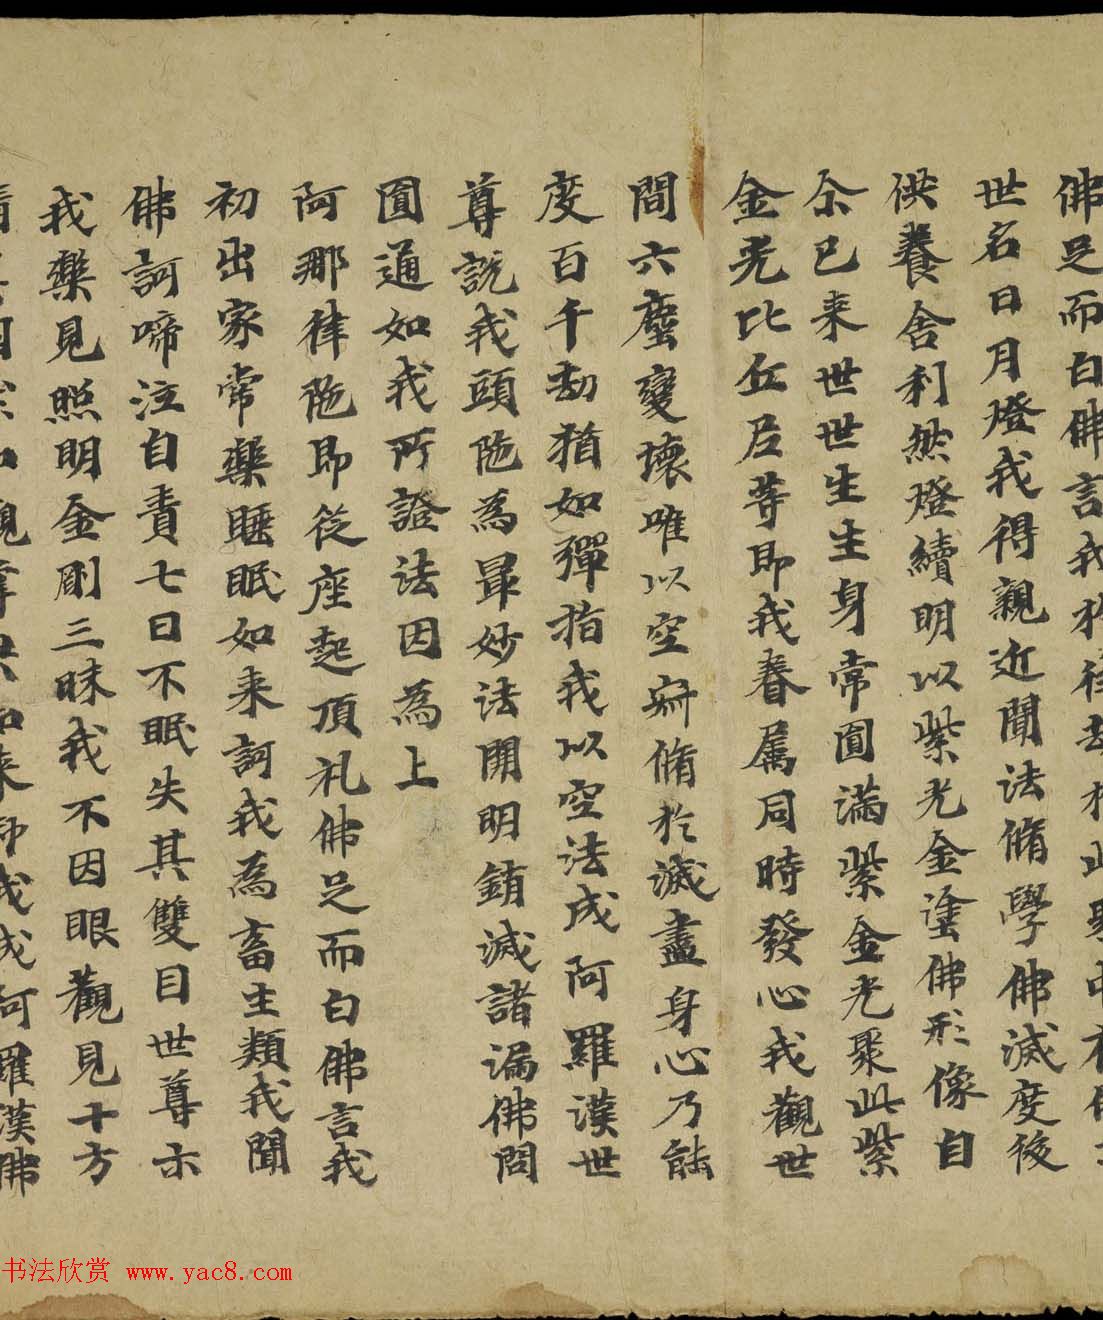 佛足而白佛言我於往劫於此界中有佛
世名日月燈我得親近聞法脩學佛滅度後
供養舍利然燈續明以紫光金塗佛形像自
尒已来世世生生身常圓滿紫金光聚此紫
金光比丘尼等即我眷属同時發心我觀世
間六塵變壞唯以空寂脩於滅盡身心乃能
度百千劫猶如彈指我以空法成阿羅漢世
尊說我頭陁為最妙法開明銷滅諸漏佛問
圓通如我所證法因為上
阿那律陁即從座起頂礼佛足而白佛言我
初出家常樂睡眠如来訶我為畜生類我聞
佛訶啼注自責七日不眠失其雙目世尊示
我樂見照明金剛三昧我不因眼觀見十方
如来印我成阿羅漢佛
书法欣赏 www.yac8.com